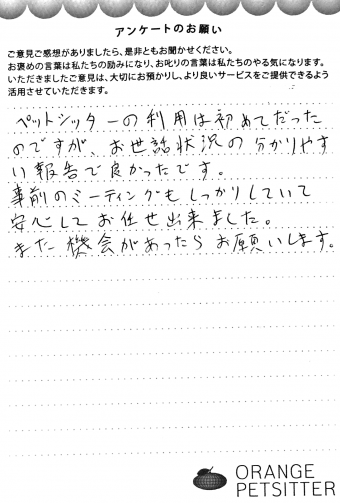 アンケートのお願い
ご意見ご感想がありましたら、是非ともお聞かせください。
お褒めの言葉は私たちの励みになり、お叱りの言葉は私たちのやる気になります。
いただきましたご意見は、大切にお預かりし、より良いサービスをご提供できるよう
活用させていただきます。
ペットシッターの利用は初めてだった
のですが、お世話状況の分かりやす
い報告で良かったです。
事前のミーティングもしっかりしていて
安心してお任せ出来ました。
また機会があったらお願いします。
ORANGE
PETSITTER